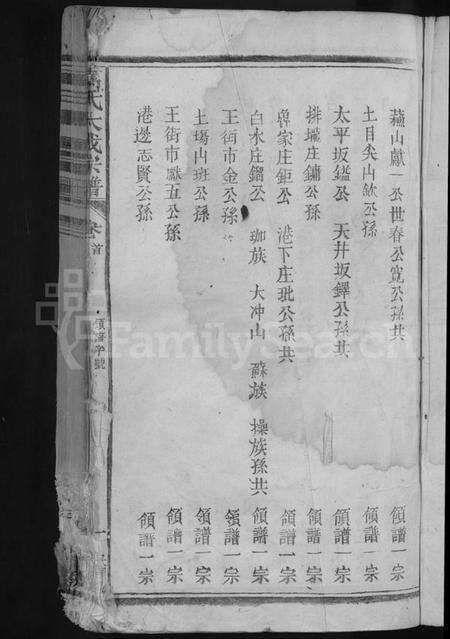 蘓山獻一公世春公寬公孫共 領譜一宗
土目尖山欽公孫 領譜一宗
太平坂鑑公 天井坂鐸公孫共 領譜一宗
排城庄鏞公孫 領譜一宗
魯家庄鉅公 港下庄玭公孫共 領譜一宗
白水庄鎦公 珈族 大冲山 蘇族 操族孫共 領譜一宗
王街市金公孫 領譜一宗
土塲山班公孫 領譜一宗
王街市五公孫 領譜一宗
港邊志賢公孫 領譜一宗
氏大成宗譜 卷首 領譜字號
FamilySearch